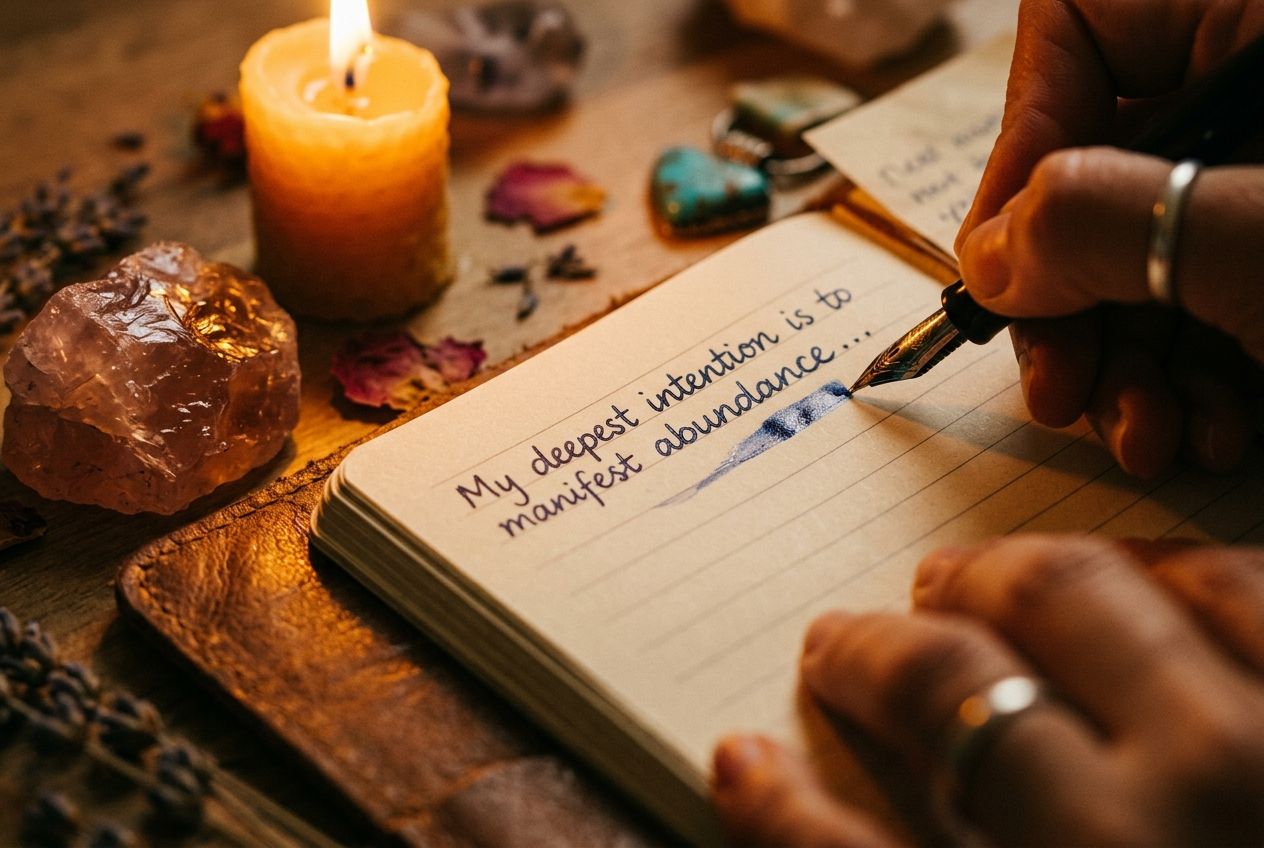 My deepest intention is to
manifest abundance...